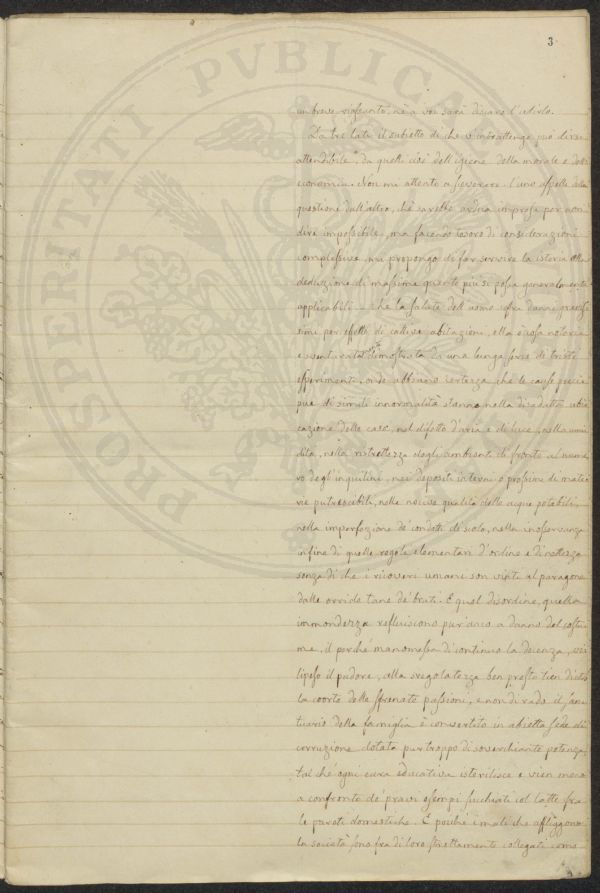 3
un breve riassunto, nè a voi sarà discaro l'udirlo.
Da tre lati il subietto di che v'intrattengo, può dirsi
attendibile, da quelli cioè dell'igiene della morale e dell'
economia. Non mi attento a sceverare l'uno aspetto della
questione dall'altro, chè sarebbe ardua impresa per non
dire impossibile, ma facendo tesoro di considerazioni
complessive, mi propongo di far servire la istoria alla
deduzione di massime quanto più si possa generalmente
applicabili — che la salute dell'uomo soffra danni gravis
simi per effetto di cattive abitazioni, ella è cosa notoria
e sventuratamente dimostrata da una lunga serie di tristi
esperimenti, onde abbiamo certezza che le cause precip
pue di simili innormalità stanno nella disadatta ubi
cazione delle case, nel difetto d'aria e di luce, nella umi
dità, nella ristrettezza degli ambienti di fronte al nume
ro degl'inquilini, nei depositi interni o prossimi di mate
rie putrescibili, nelle nocive qualità delle acque potabili,
nella imperfezione de' condotti di scolo, nella inosservanza
infine di quelle regole elementari d'ordine e di nettezza
senza di che i ricoveri umani son vinti al paragone
dalle orride tane de' bruti. E quel disordine, quella
immondezza refluiscono pur'anco a danno del costu
me, il perchè manomessa di continuo la decenza, vili
lipeso il pudore, alla sregolatezza ben presto tien dietro
la coorte delle sfrenate passioni, e non di rado il san
tuario della famiglia è convertito in abietta sede di
corruzione dotata purtroppo di soverchiante potenza
tal chè ogni cura educativa isterilisce e vien meno
a confronto de' pravi esempi succhiati col latte fra
le pareti domestiche. E poichè i mali che affliggono
la società sono fra di loro strettamente collegati come
PROSPERITATI PVBLICAE